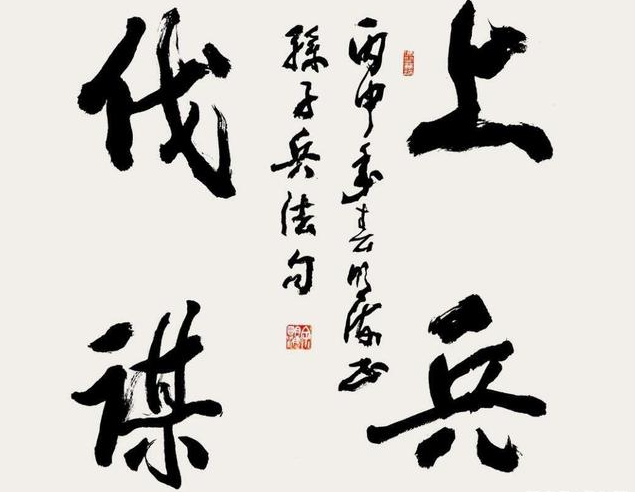 上兵
伐谋
丙申年春明海书
孫子兵法句